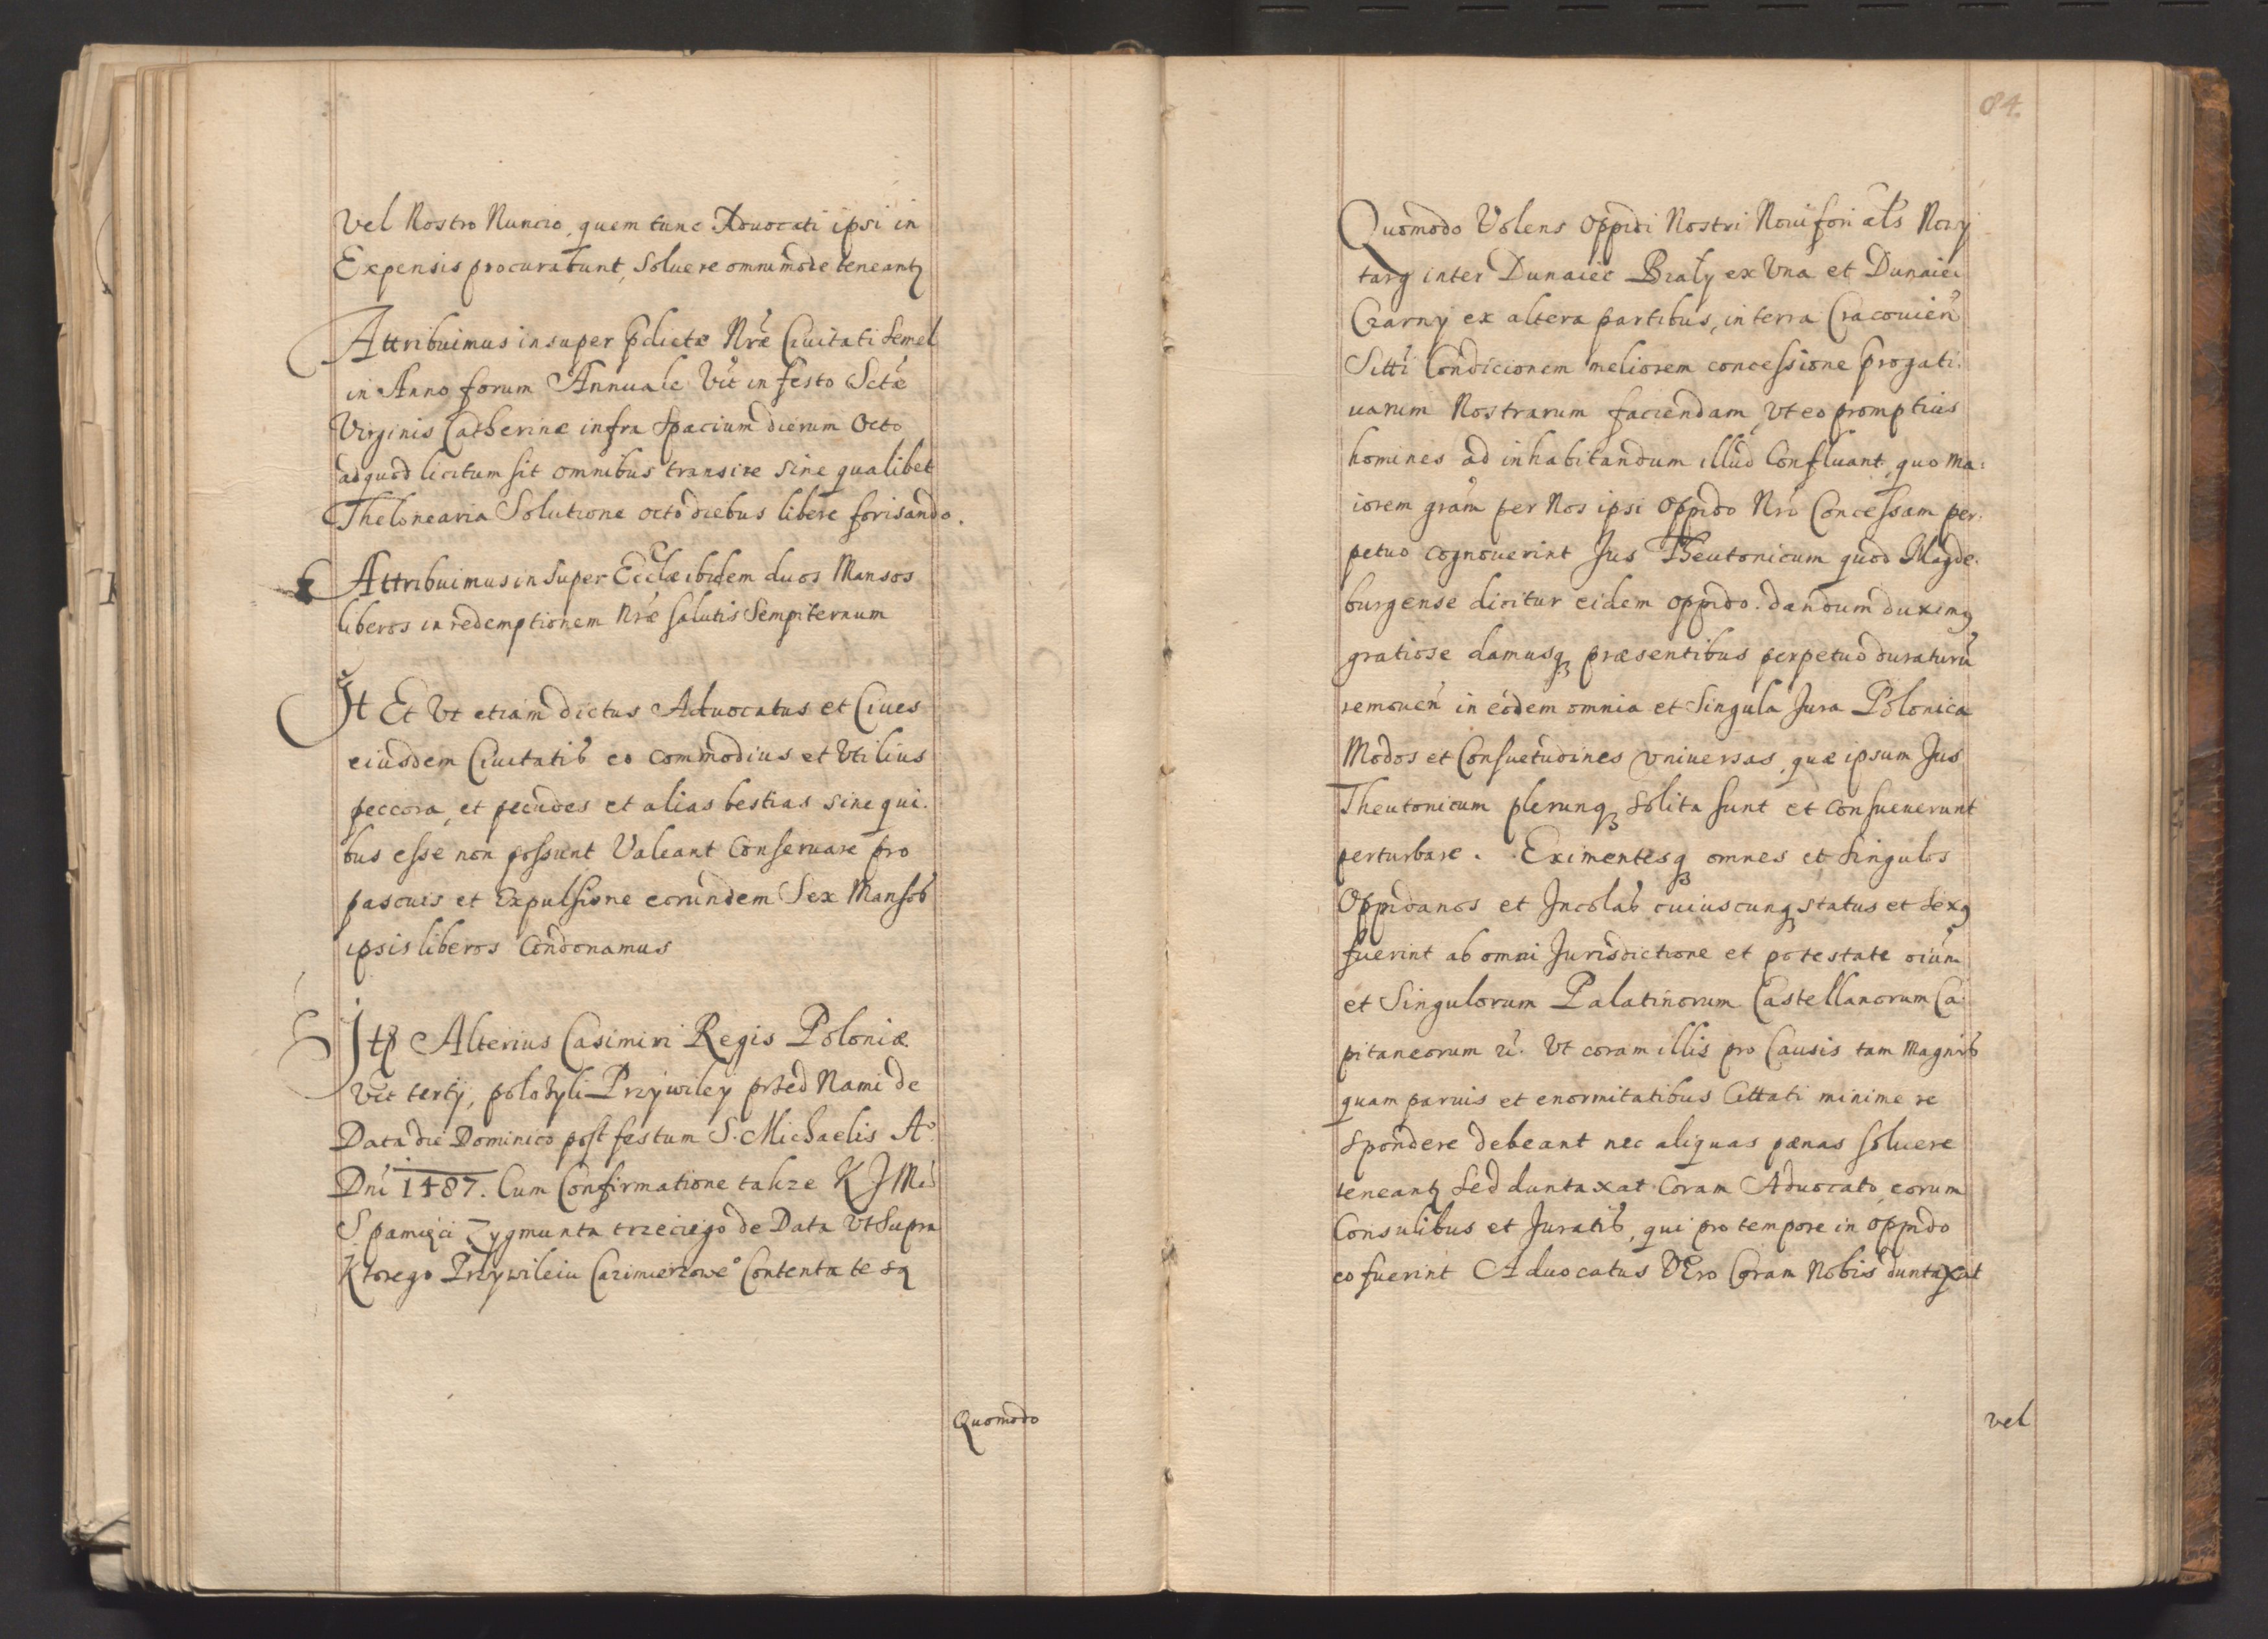 Vel Nostro Nuncio, quem tunc Aduocati ipsi in
Expensis procurabunt, Soluere omnimode teneantꝫ
Attribuimus insuper pdictæ Nræ Ciuitati Semel
in Anno forum Annuale Vlt in festo Sctæ
Virginis Catherinæ infra Spacium dierum Octo
ad quod licitum sit omnibus transire sine qualibet
Thelonearia Solutione octo diebus libere forisando.
Attribuimus in Super Ecclæ ibidem duos Mansos
liberos in redemptionem Nræ salutis Sempiternum
It Et Vt etiam dictus Aduocatus et Ciues
eiusdem Ciuitatis eo commodius et Vtilius
peccora, et pecudes et alias bestias sine qui.
bus esse non possunt Valeant Conseruare pro
pascuis et Expulsione eorundem Sex Mansos
ipsis liberos Condonamus
Itp Alterius Casimiri Regis Poloniæ
Vlt tertÿ, połozyli Przywiley przed Nami de
Data die Dominico post festum S. Michaelis Ao
Dni 1487. Cum Confirmatione takze K J Mci
S pamięci Zygmunta trzeciego de Data Vt Supra
Ktorego Przywileiu Cazimierzowe° Contenta te są
Quomodo
84.
Quomodo Volens Oppidi Nostri Nouifori als Nowy
targ inter Dunaiec Biały ex Vna et Dunaiec
Czarny ex altera partibus, in terra Cracouien
Sitti Condicionem meliorem concessione progati.
uarum Nostrarum faciendam, Vt eo promptius
homines ad inhabitandum illud Confluant, quo ma:
iorem gram per Nos ipsi Oppido Nro Concessam per:
petuo cognouerint Jus Theutonicum quod Magde.
burgense dicitur eidem oppido. dandum duximꝯ
gratiose damusqꝫ præsentibus perpetuo duraturu
remouen in eodem omnia et Singula Jura Polonica
Modos et Consuetudines vniuersas, quæ ipsum Jus
Theutonicum plerunqꝫ Solita sunt et consueuerunt
perturbare. Eximentesqꝫ omnes et Singulos
Oppidanos et Incolas cuiuscunqꝫ status et Sexꝯ
fuerint ab omni Jurisdictione et potestate oium
et Singulorum Palatinorum Castellanorum Ca
pitaneorum &. Vt coram illis pro Causis tam Magnis
quam paruis et enormitatibus Cittati minime re
spondere debeant nec aliquas pænas soluere
teneantꝫ Sed duntaxat Coram Aduocato, eorum
Consulibus et Juratis, qui pro tempore in oppido
eo fuerint Aduocatus VEro Coram Nobis duntaxat
vel